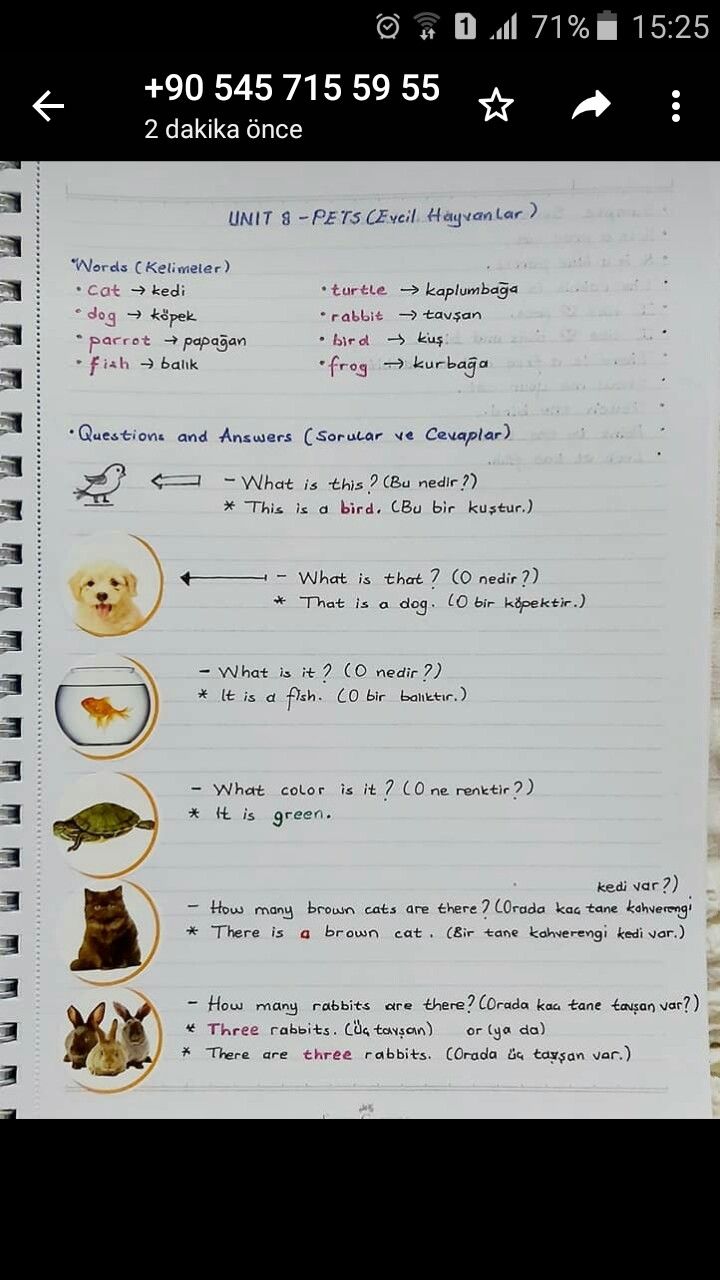 71% 15:25
+90 545 715 59 55
2 dakika önce
UNIT 8 - PETS (Evcil Hayvanlar)
Words (Kelimeler)
• cat → kedi
• dog → köpek
• parrot → papağan
• fish → balık
• turtle → kaplumbağa
• rabbit → tavşan
• bird → kuş
• frog → kurbağa
• Questions and Answers (Sorular ve Cevaplar)
- What is this? (Bu nedir?)
* This is a bird. (Bu bir kuştur.)
- What is that? (O nedir?)
* That is a dog. (O bir köpektir.)
- What is it? (O nedir?)
* It is a fish. (O bir balıktır.)
- What color is it? (O ne renktir?)
* It is green.
- How many brown cats are there? (Orada kaç tane kahverengi
kedi var?)
* There is a brown cat. (Bir tane kahverengi kedi var.)
- How many rabbits are there? (Orada kaç tane tavşan var?)
* Three rabbits. (Üç tavşan) or (ya da)
* There are three rabbits. (Orada üç tavşan var.)